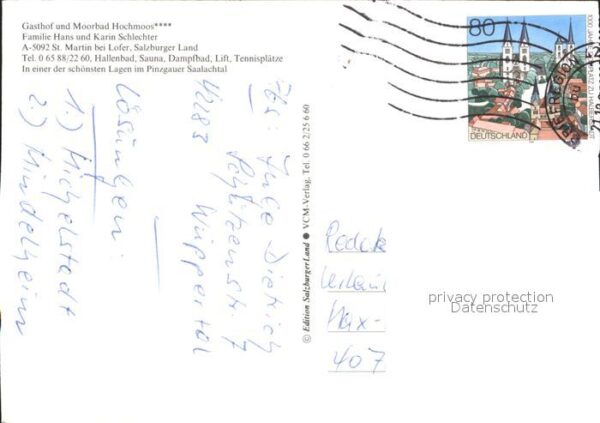 Gasthof und Moorbad Hochmoos****
Familie Hans und Karin Schlechter
A-5092 St. Martin bei Lofer, Salzburger Land
Tel. 0 65 88/22 60, Hallenbad, Sauna, Dampfbad, Lift, Tennisplätze
In einer der schönsten Lagen im Pinzgauer Saalachtal
Dietrich
Schützenstr. 7
42283 Wuppertal
Lösungen:
1.) Michelstadt
2.) Mindelheim
© Edition SalzburgerLand ● VCM-Verlag, Tel. 0 66 2/25 6 60
80
DEUTSCHLAND
BRIEFREGION
Redak
Max-
407
privacy protection
Datenschutz